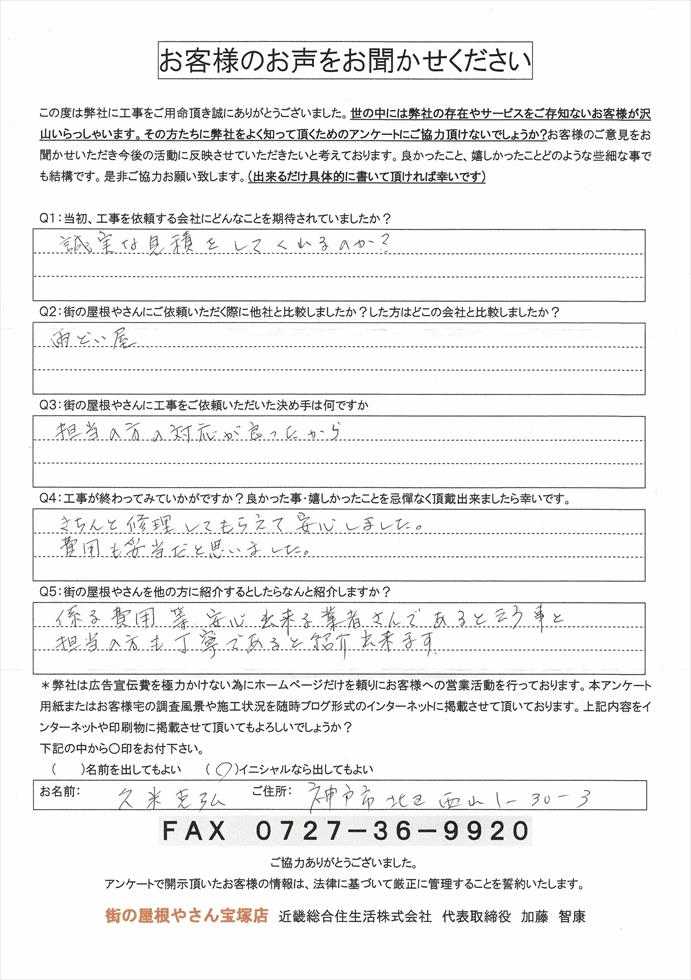 お客様のお声をお聞かせください
この度は弊社に工事をご用命頂き誠にありがとうございました。世の中には弊社の存在やサービスをご存知ないお客様が沢
山いらっしゃいます。その方たちに弊社をよく知って頂くためのアンケートにご協力頂けないでしょうか?お客様のご意見をお
聞かせいただき今後の活動に反映させていただきたいと考えております。良かったこと、嬉しかったことどのような些細な事で
も結構です。是非ご協力お願い致します。(出来るだけ具体的に書いて頂ければ幸いです)
Q1:当初、工事を依頼する会社にどんなことを期待されていましたか?
誠実な見積をしてくれるのか?
Q2:街の屋根やさんにご依頼いただく際に他社と比較しましたか?した方はどこの会社と比較しましたか?
雨どい屋
Q3:街の屋根やさんに工事をご依頼いただいた決め手は何ですか
担当の方の対応が良ったから
Q4:工事が終わってみていかがですか?良かった事・嬉しかったことを忌憚なく頂戴出来ましたら幸いです。
きちんと修理してもらえて安心しました。
費用も妥当だと思いました。
Q5:街の屋根やさんを他の方に紹介するとしたらなんと紹介しますか?
係る費用等安心出来る業者さんであると云う事と
担当の方も丁寧であると紹介出来ます
*弊社は広告宣伝費を極力かけない為にホームページだけを頼りにお客様への営業活動を行っております。本アンケート
用紙またはお客様宅の調査風景や施工状況を随時ブログ形式のインターネットに掲載させて頂いております。上記内容をイ
ンターネットや印刷物に掲載させて頂いてもよろしいでしょうか?
下記の中から〇印をお付下さい。
( )名前を出してもよい (〇)イニシャルなら出してもよい
お名前: 久米克弘 ご住所: 神戸市北区西山1-30-3
FAX 0727-36-9920
ご協力ありがとうございました。
アンケートで開示頂いたお客様の情報は、法律に基づいて厳正に管理することを誓約いたします。
街の屋根やさん宝塚店 近畿総合住生活株式会社 代表取締役 加藤 智康